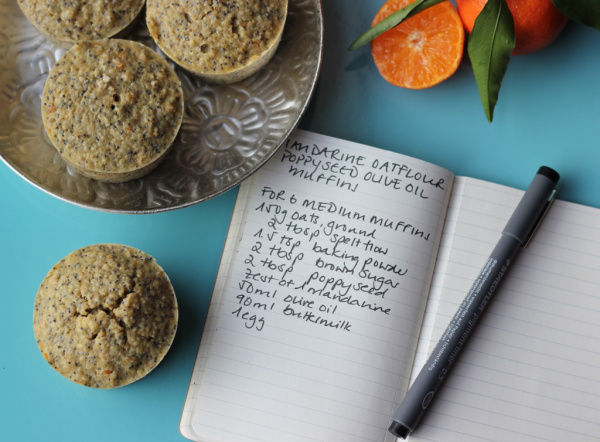 MANDARINE OATFLOUR
POPPYSEED OLIVE OIL
MUFFINS
FOR 6 MEDIUM MUFFINS
150g oats, ground
2 tbsp spelt flour
1.5 tsp baking powder
2 tbsp brown sugar
2 tbsp poppyseed
zest of 1 mandarine
50ml olive oil
90ml buttermilk
1 egg
STAEDTLER pigment liner